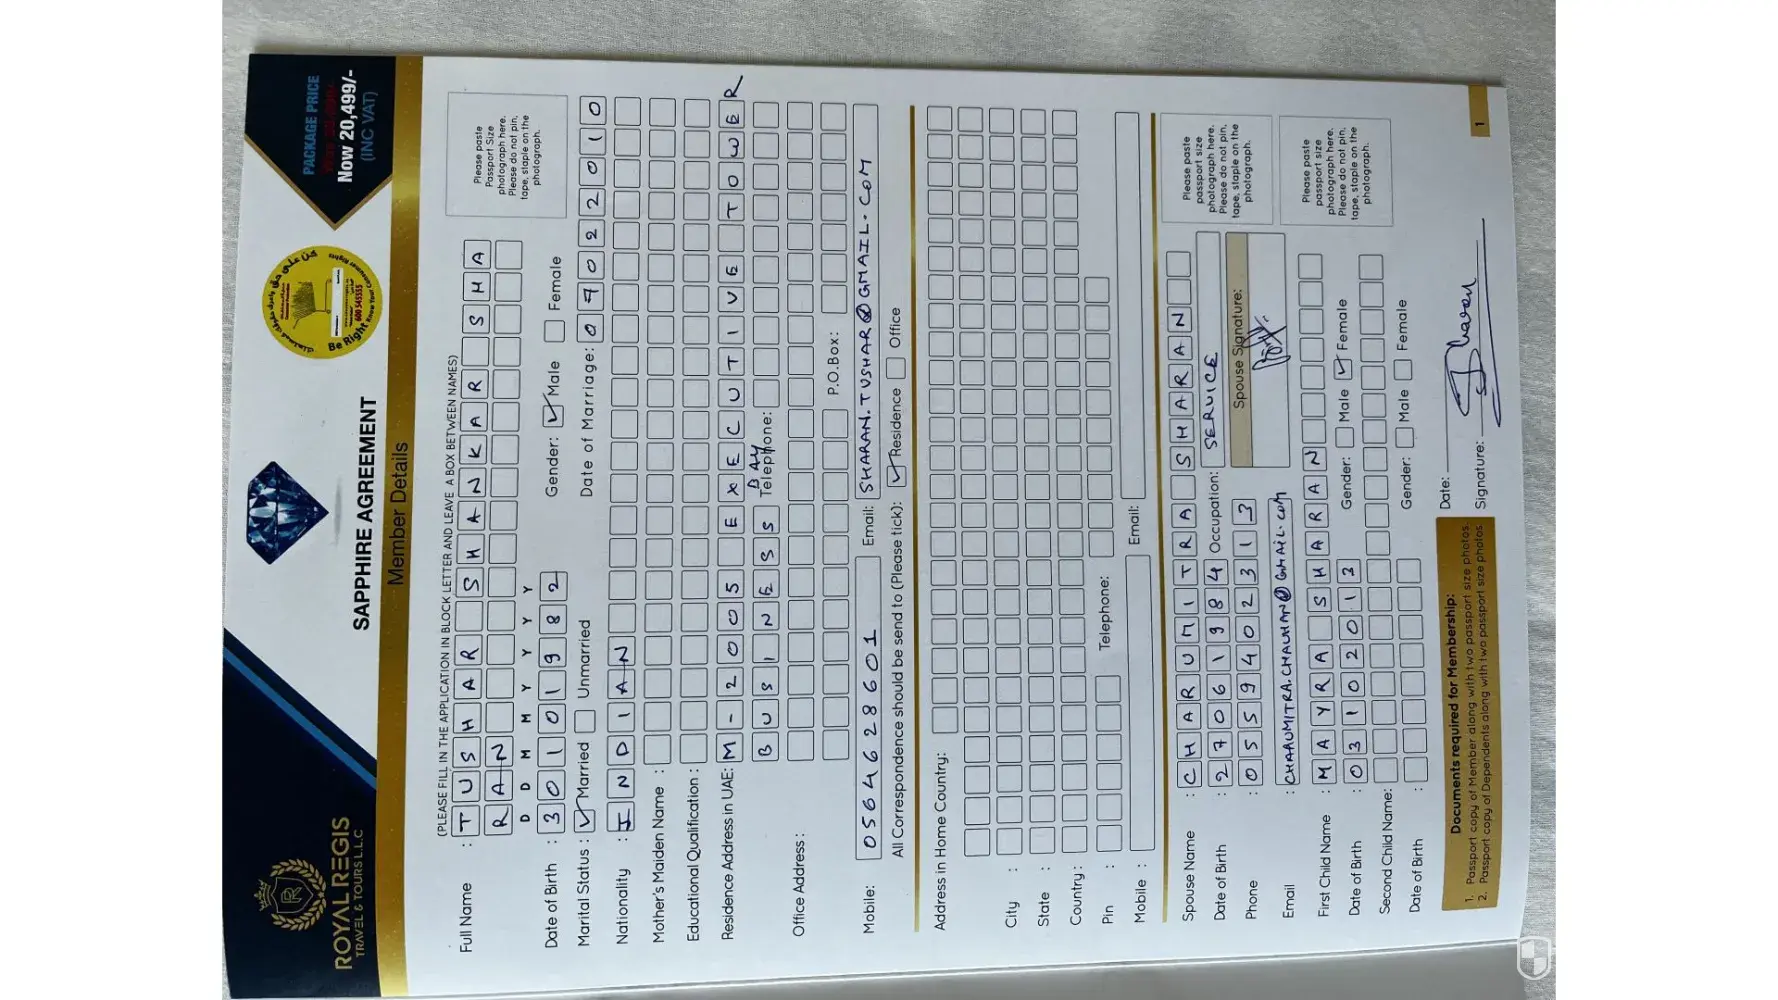 ROYAL REGIS
TRAVEL & TOURS L.L.C
SAPPHIRE AGREEMENT
Be Right
Know Your Consumer Rights
600 545555
PACKAGE PRICE
Now 20,499/-
(INC VAT)
Member Details
(PLEASE FILL IN THE APPLICATION IN BLOCK LETTER AND LEAVE A BOX BETWEEN NAMES)
Full Name : TUSHAR SHANKAR SHA
RAN
D D M M Y Y Y Y
Date of Birth : 30101982 Gender: Male Female
Marital Status : Married Unmarried Date of Marriage: 07022010
Nationality : INDIAN
Mother's Maiden Name :
Educational Qualification :
Residence Address in UAE: M-2005 EXECUTIVE TOWER
BUSINESS BAY
Telephone:
Office Address :
P.O.Box:
Mobile: 0564628601 Email: SHARAN.TUSHAR@GMAIL.COM
All Correspondence should be send to (Please tick): Residence Office
Please paste
Passport Size
photograph here.
Please do not pin,
tape, staple on the
photograph.
Address in Home Country:
City :
State :
Country :
Pin : Telephone:
Mobile : Email:
Spouse Name : CHARUMITRA SHARAN
Date of Birth : 27061984 Occupation: SERVICE
Phone : 0559402313 Spouse Signature:
Email : CHARUMITRA.CHAUHAN@GMAIL.COM
First Child Name : MAYRA SHARAN
Date of Birth : 03102013 Gender: Male Female
Second Child Name:
Date of Birth : Gender: Male Female
Please paste
passport size
photograph here.
Please do not pin,
tape, staple on the
photograph.
Please paste
passport size
photograph here.
Please do not pin,
tape, staple on the
photograph.
Documents required for Membership:
1. Passport copy of Member along with two passport size photos.
2. Passport copy of Dependents along with two passport size photos
Date:
Signature: Sharan
1